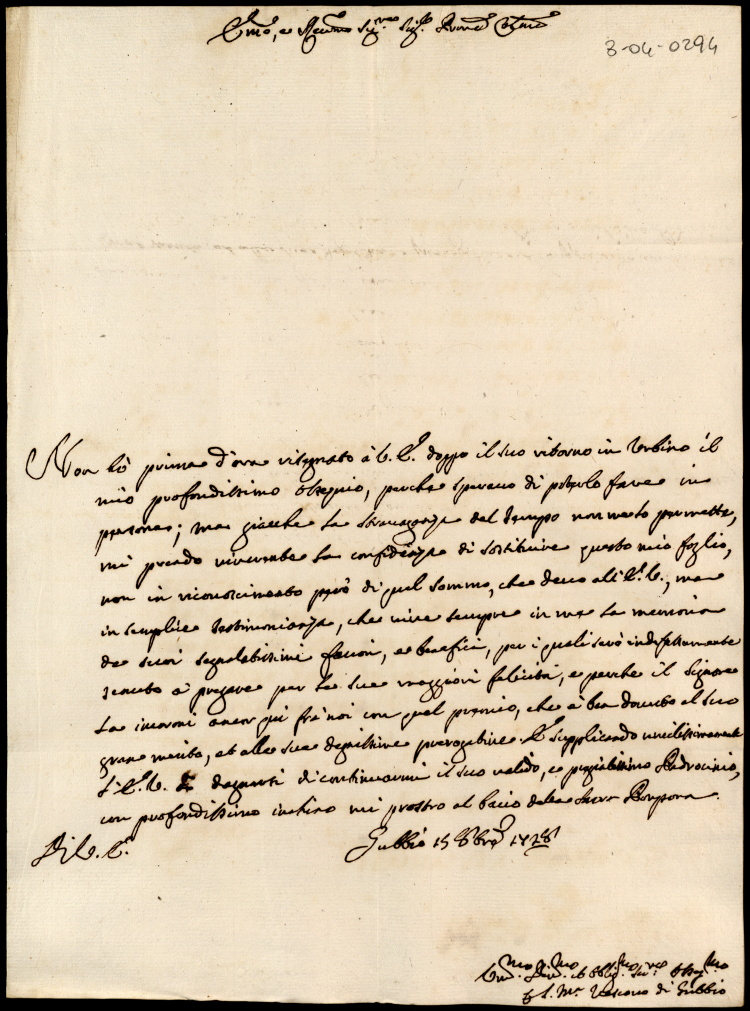 Emo, e Revmo Sigre Sigr Pron Colmo
3-04-0294
Non hò prima d'ora rasegnato à V. E. doppo il suo ritorno in Urbino il
mio profondissimo ossequio, perche speravo di poterlo fare in
persona; ma giacche la stravaganza del tempo non me lo permette,
mi prendo riverente la confidenza di sostituire questo mio foglio,
non in riconoscimento però di quel sommo, che devo all'E. V., ma
in semplice testimonianza, che vive sempre in me la memoria
de suoi segnalatissimi favori, e beneficj, per i quali sarò indefessamente
tenuto à pregare per le sue maggiori felicità, e perche il Signore
la incoroni ancor quì frà noi con quel premio, che è ben dovuto al suo
gran merito, et alle sue degnissime prerogative. E supplicando umilissimamente
l'E. V. degnarsi di continuarmi il suo valido, e pregiatissimo Padrocinio,
con profondissimo inchino mi prostro al bacio della Sacra Porpora.
Di V. E.
Gubbio 15 8bre 1728
Umo Divmo et Obligmo Serre Osseqmo
Vescovo di Gubbio